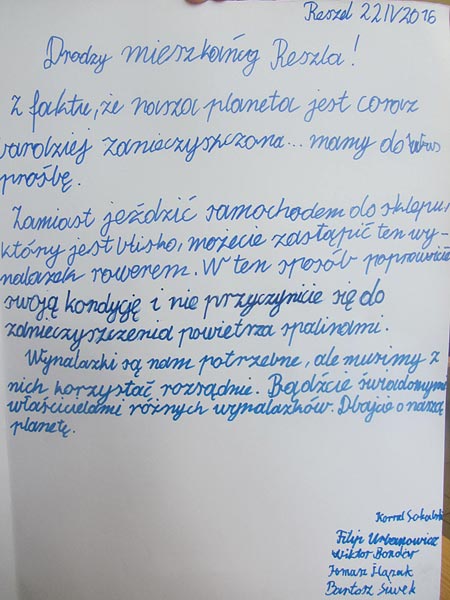 Reszel 22 IV 2016
Drodzy mieszkańcy Reszla!
Z faktu, że nasza planeta jest coraz
bardziej zanieczyszczona... mamy do Was
prośbę.
Zamiast jeździć samochodem do sklepu,
który jest blisko, możecie zastąpić ten wy-
nalazek rowerem. W ten sposób poprawicie
swoją kondycję i nie przyczynicie się do
zanieczyszczenia powietrza spalinami.
Wynalazki są nam potrzebne, ale musimy z
nich korzystać rozsądnie. Bądźcie świadomymi
właścicielami różnych wynalazków. Dbajcie o naszą
planetę.
Kornel
Filip Urbanowicz
Wiktor Bondar
Tomasz
Bartosz Siwek